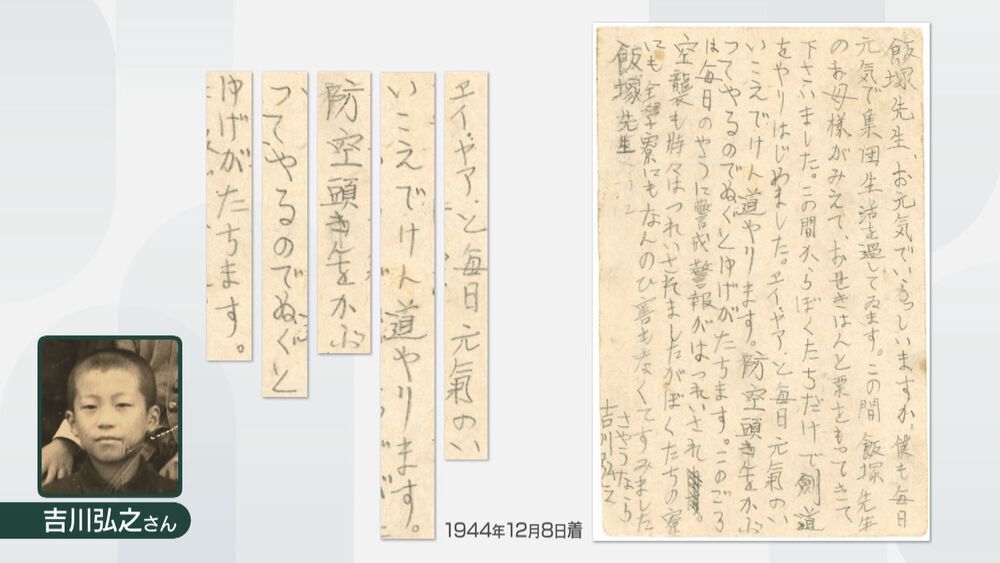 ヱイ、ヤア、と毎日元気のい
いこえでけん道やります。
防空頭きんをかぶ
つてやるのでぬぐと
ゆげがたちます。
飯塚先生、お元気でいらつしいますか、僕も毎日
元気で集団生活を過してゐます。この間飯塚先生
のお母様がみえて、おせきはんと栗をもつてきて
下さいました。この間からぼくたちだけで剣道
をやりはじめました。ヱイ、ヤア、と毎日元気のい
いこえでけん道やります。防空頭きんをかぶ
つてやるのでぬぐとゆげがたちます。このごろ
は毎日のやうに警戒警報がはつれいされ
空襲も時々はつれいされましたがぼくたちの寮
にも全学寮にもなんのひ害もなくてすみました
さやうなら
吉川弘之
飯塚先生
1944年12月8日着
吉川弘之さん